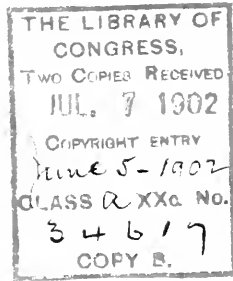 THE LIBRARY OF
CONGRESS,
TWO COPIES RECEIVED
JUL. 7 1902
COPYRIGHT ENTRY
June 5-1902
CLASS a XXa No.
34617
COPY B.